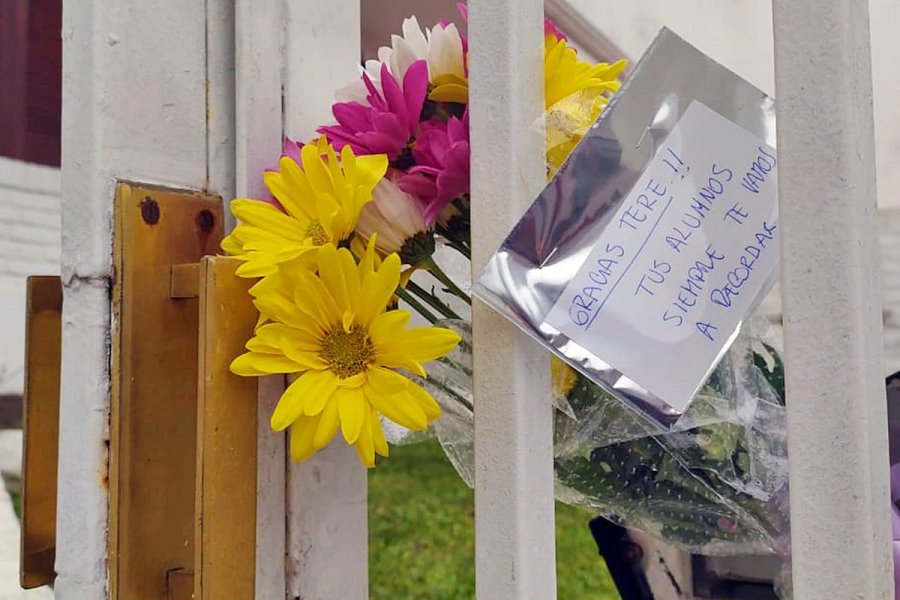 GRACIAS TERE!!
TUS ALUMNOS
SIEMPRE TE VAMOS
A RECORDAR